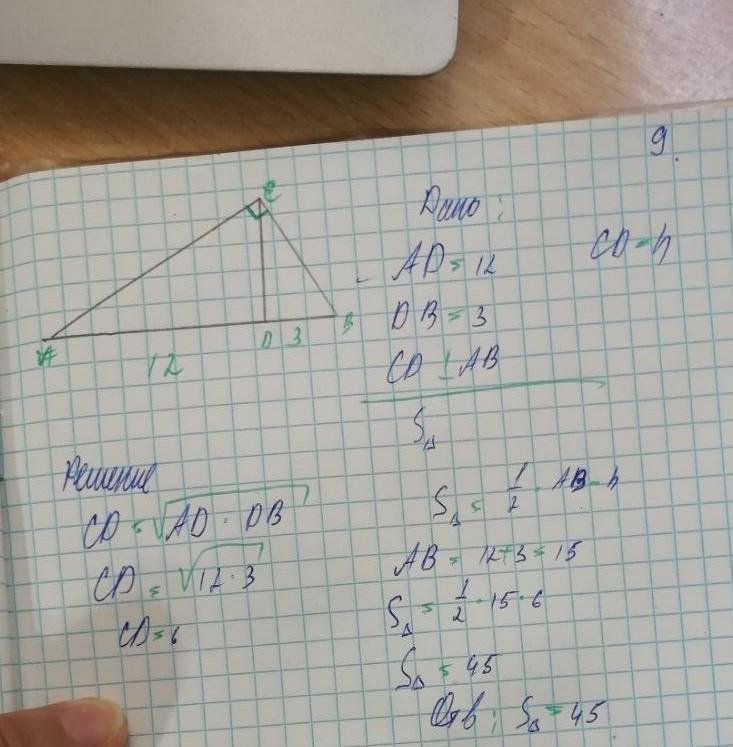 9.
C
A
D
B
12
3
Дано:
AD = 12
CD = h
DB = 3
CD ⊥ AB
S△
Решение
CD = √AD · DB
CD = √12·3
CD = 6
S△ = 1/2 · AB · h
AB = 12+3=15
S△ = 1/2 · 15 · 6
S△ = 45
Отв: S△ = 45